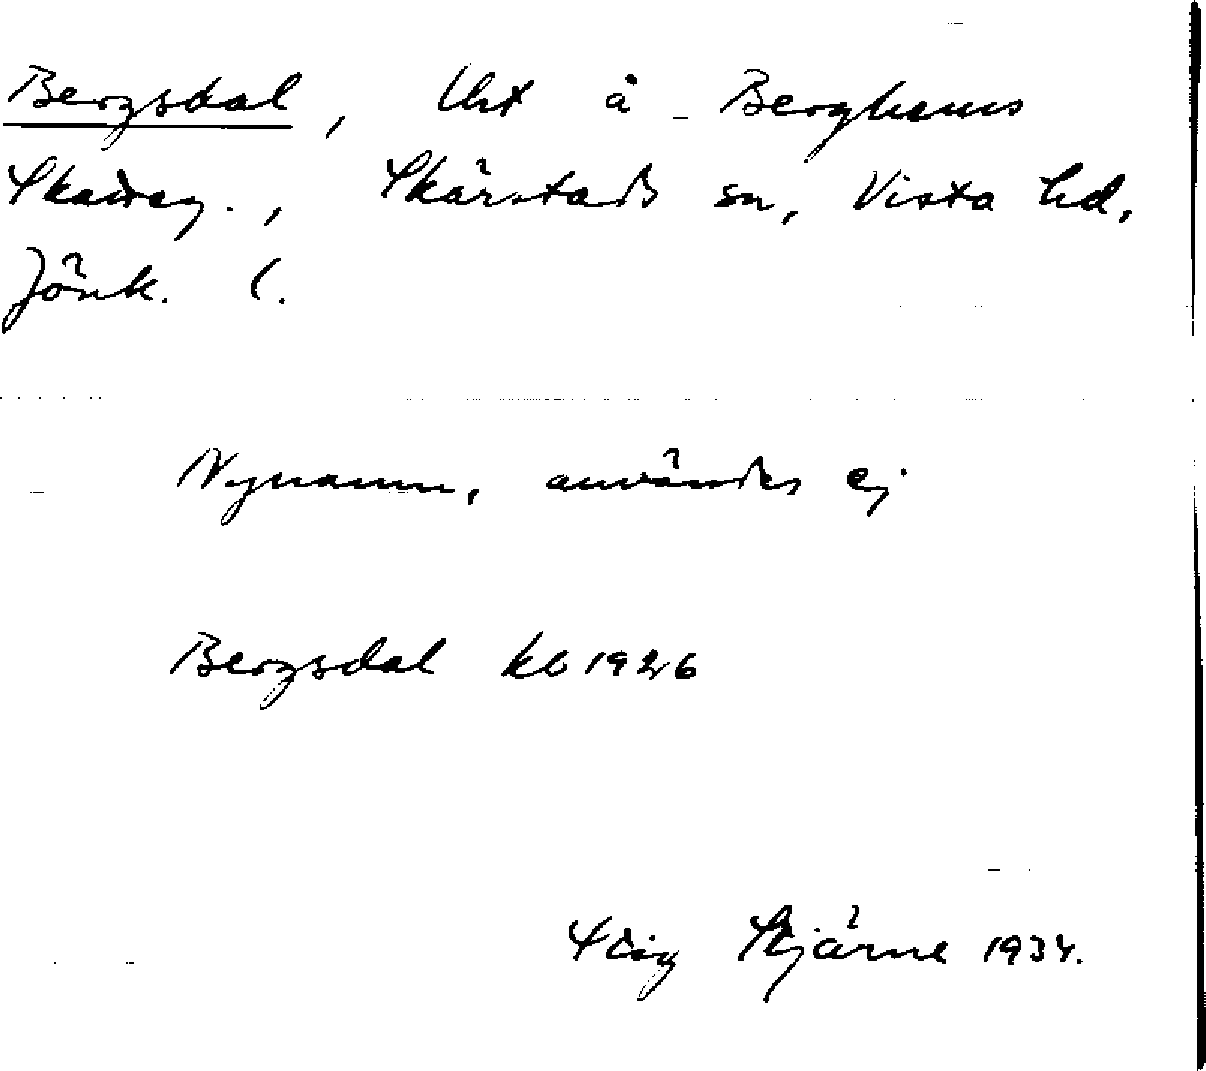 Bergsdal, Uht å Berghems
Skatteg., Skärstads sn, Vista hd,
Jönk. l.
Nynamn, användes ej
Bergsdal kb 1926
Stig Stjärne 1934.